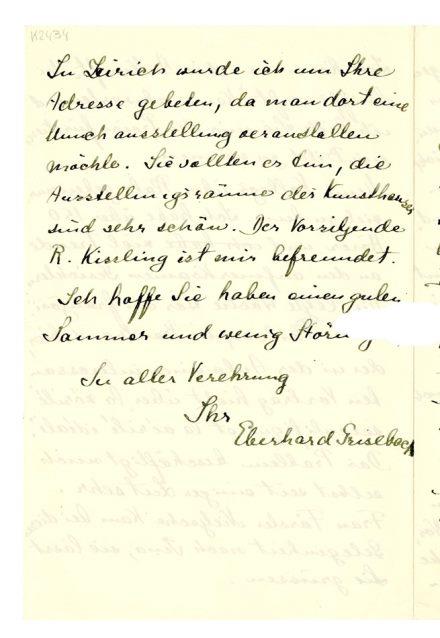 K2434
In Zürich wurde ich um Ihre
Adresse gebeten, da man dort eine
Munch ausstellung veranstalten
möchte. Sie sollten es tun, die
Ausstellungsräume des Kunsthauses
sind sehr schön. Der Vorsitzende
R. Kissling ist mir befreundet.
Ich hoffe Sie haben einen guten
Sommer und wenig Störung
In aller Verehrung
Ihr
Eberhard Grisebach